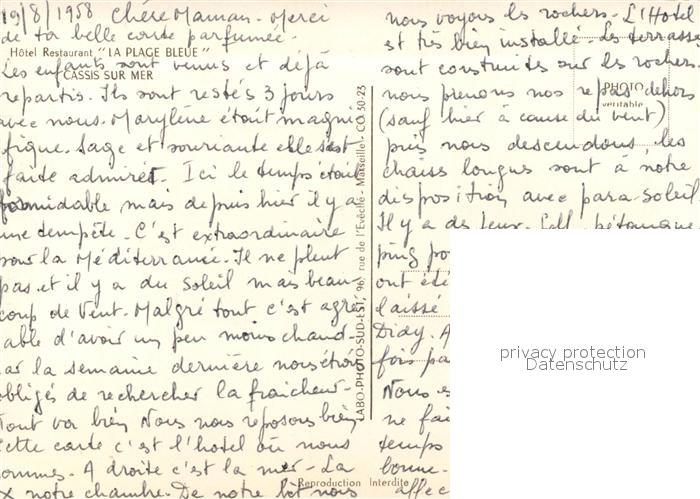 19/8/1958 Chère Maman. Merci
de ta belle carte parfumée.
Hôtel Restaurant "LA PLAGE BLEUE"
Les enfants sont venus et déjà
CASSIS SUR MER
repartis. Ils sont restés 3 jours
avec nous. Marylène était magni
fique. Sage et souriante elle s'est
faite admirer. Ici le temps était
formidable mais depuis hier il y a
une tempête. C'est extraordinaire
pour la Méditerranée. Il ne pleut
pas et il y a du soleil mais beau-
coup de vent. Malgré tout c'est agré
able d'avoir un peu moins chaud
car la semaine dernière nous étions
obligés de rechercher la fraicheur.
Tout va bien Nous nous reposons bien
Cette carte c'est l'hotel où nous
sommes. A droite c'est la mer. La
x notre chambre. De notre lit nous
LABO-PHOTO-SUD-EST, 96, rue de l'Evêché - Marseille - CO 50-23
nous voyons les rochers. L'Hotel
est très bien installé. Les terrasses
sont construites sur les rochers.
nous prenons nos repas dehors
PHOTO
véritable
(sauf hier à cause du vent)
puis nous descendons, les
chaises longues sont à notre
disposition avec para-soleil
Il y a des jeux. pétanque
ping po
ont été
laissé
Didy. A
fois pa
Nous s
ne fai
temps
bonne.
affec
Reproduction Interdite
privacy protection
Datenschutz